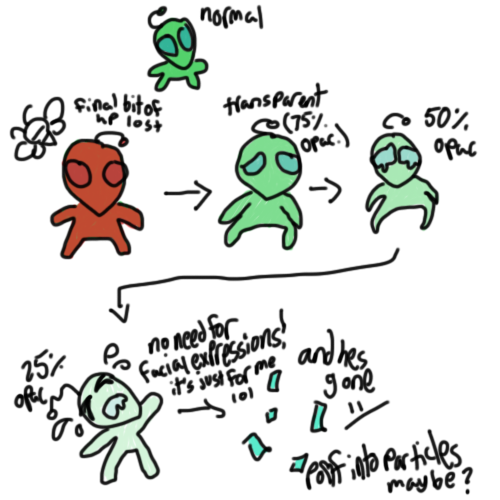 normal
final bit of
hp lost
transparent
(75%
opac.)
50%
opac
25%
opac
no need for
facial expressions!
it's just for me
lol
and hes
gone
poff into particles
maybe?